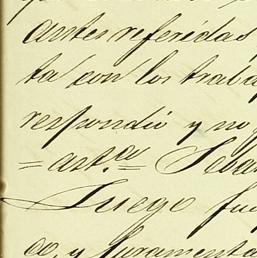 antes referidas
ta con los traba
respondió y no
= ast.ᵃˢ =
Luego fue
y juramenta